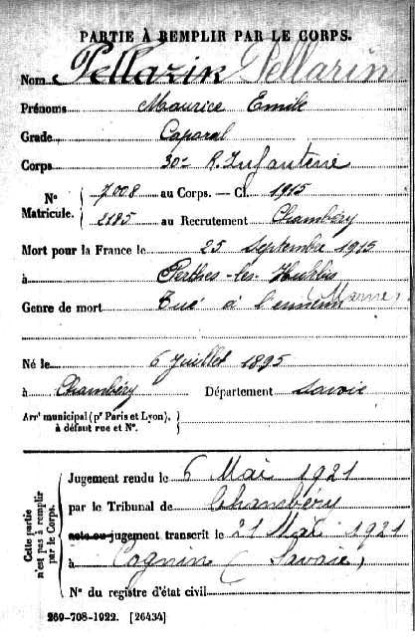 PARTIE À REMPLIR PAR LE CORPS.
Nom Pellarin Pellarin
Prénoms Maurice Emile
Grade Caporal
Corps 30e R. Infanterie
N° Matricule. { 7008 au Corps. — Cl. 1915
2185 au Recrutement Chambéry
Mort pour la France le 25 Septembre 1915
à Perthes-les-Hurlus (Marne)
Genre de mort Tué à l'ennemi
Né le 6 Juillet 1895
à Chambéry Département Savoie
Arrt municipal (pr Paris et Lyon), à défaut rue et N°. }
Cette partie n'est pas à remplir par le Corps.
Jugement rendu le 6 Mai 1921
par le Tribunal de Chambéry
acte ou jugement transcrit le 21 Mai 1921
à Cognin (Savoie)
N° du registre d'état civil
269-708-1922. [26434]